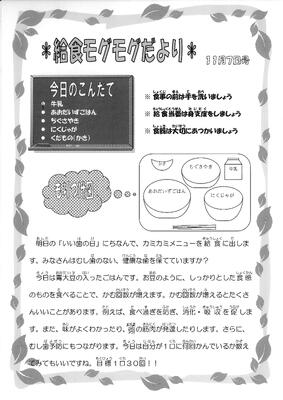 給食モグモグだより
11月7日号
今日のこんだて
牛乳
あおだいずごはん
ちくさやき
にくじゃが
くだもの(かき)
※ 食事の前は手を洗いましょう
※ 給食当番は身支度をしましょう
※ 食器は大切にあつかいましょう
ちぐさやき
牛乳
あおだいずごはん
にくじゃが
明日の「いい歯の日」にちなんで、カミカミメニューを給食に出しま
す。みなさんはむし歯のない、健康な歯を保てていますか?
今日は青大豆の入ったごはんです。お豆のように、しっかりとした食感
のものを食べることで、かむ回数が増えます。かむ回数が増えるとたくさ
んいいことがあります。例えば、食べ過ぎを防ぎ、消化・吸収を促しま
す。また、味がよくわかったり、頬の筋肉が発達したりします。さらに、
むし歯予防にもつながります。今日は自分が1口に何回かんでいるか数え
てみてもいいですね。目標1口30回!!